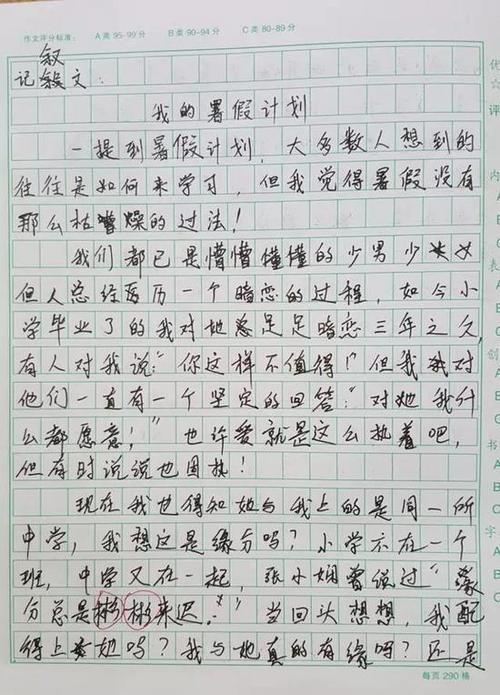 作文评分标准： A类 95-99分 B类 90-94分 C类 80-89分
叙
记文：
我的暑假计划
一提到暑假计划，大多数人想到的
往往是如何来学习，但我觉得暑假没有
那么枯燥的过法！
我们都已是懵懵懂懂的少男少女
但人总经历一个暗恋的过程，如今小
学毕业了的我对她足足暗恋三年之久，
有人对我说：“你这样不值得！”但我对
他们一直有一个坚定的回答：“对她我什
么都愿意！”也许爱就是这么执着吧，
但有时说说也固执！
现在我也得知她与我上的是同一所
中学，我想这是缘分吗？小学不在一个
班，中学又在一起，张小娴曾说过“缘
分总是彬彬来迟。”当回头想想，我配
得上她吗？我与她真的有缘吗？还是
每页 290 格
优
☆
评
内
A
B
C
表
A
B
C
创
A
B
书
A
B
C
字